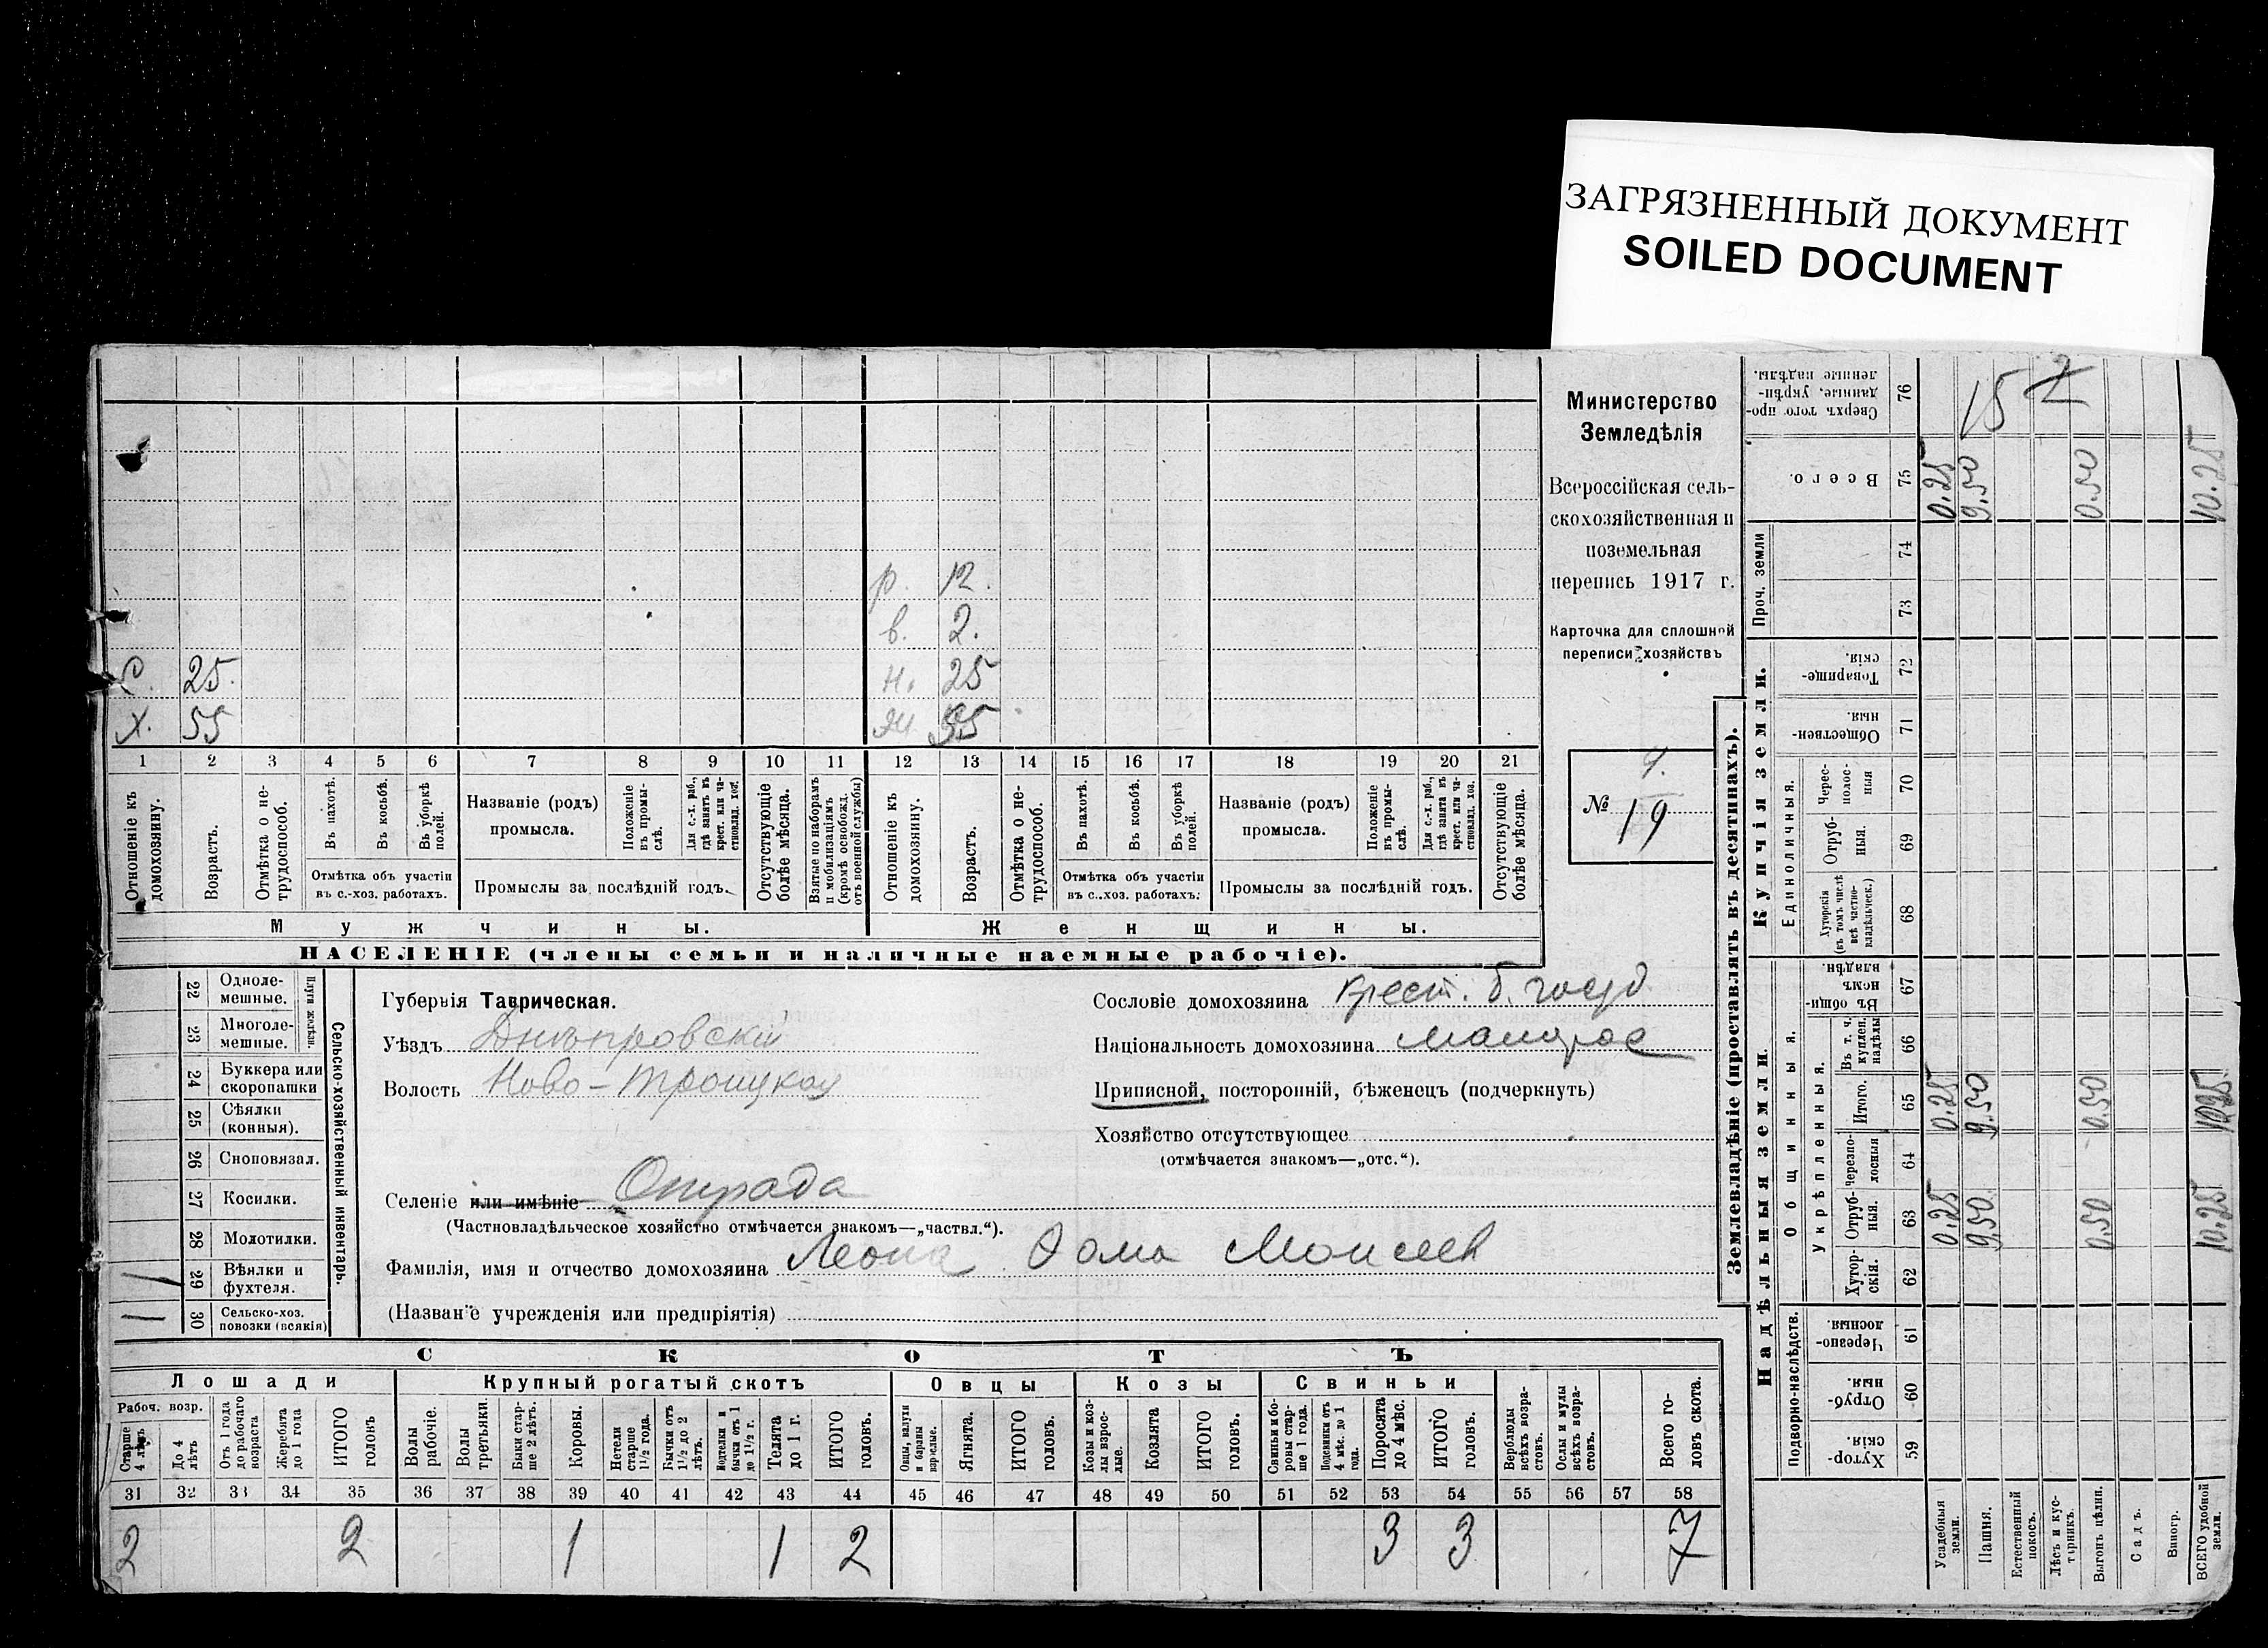 ЗАГРЯЗНЕННЫЙ ДОКУМЕНТ
SOILED DOCUMENT
Министерство
Земледѣлія
Всероссійская сель-
скохозяйственная и
поземельная
перепись 1917 г.
Карточка для сплошной
переписи хозяйствъ
№ 19
р. 12.
в. 2.
С. 25. н. 25
Х. 55 ж. 55
1 2 3 4 5 6 7 8 9 10 11 12 13 14 15 16 17 18 19 20 21
Отношеніе къ домохозяину.
Возрастъ.
Отмѣтка о не-трудоспособ.
Въ пахотѣ.
Въ косьбѣ.
Въ уборкѣ полей.
Отмѣтка объ участіи
въ с.-хоз. работахъ.
Названіе (родъ)
промысла.
Положеніе въ промы-слѣ.
Для с.-х. раб., гдѣ занятъ въ крест. или ча-стновлад. хоз.
Промыслы за послѣдній годъ.
Отсутствующіе болѣе мѣсяца.
Взятые по наборамъ и мобилизаціямъ (кромѣ освобожд. отъ военной службы)
Отношеніе къ домохозяину.
Возрастъ.
Отмѣтка о не-трудоспособ.
Въ пахотѣ.
Въ косьбѣ.
Въ уборкѣ полей.
Отмѣтка объ участіи
въ с.-хоз. работахъ.
Названіе (родъ)
промысла.
Положеніе въ промы-слѣ.
Для с.-х. раб., гдѣ занята въ крест. или ча-стновлад. хоз.
Промыслы за послѣдній годъ.
Отсутствующіе болѣе мѣсяца.
Мужчины. Женщины.
НАСЕЛЕНІЕ (члены семьи и наличные наемные рабочіе).
22 Одноле-мешные.
23 Многоле-мешные.
Плуги желѣзн.
24 Буккера или скоропашки
25 Сѣялки (конныя).
26 Сноповязал.
27 Косилки.
28 Молотилки.
29 Вѣялки и фухтеля. 1
30 Сельско-хоз. повозки (всякія) 1
Сельско-хозяйственный инвентарь.
Губернія Таврическая.
Уѣздъ Днѣпровскій
Волость Ново-Троицкая
Селеніе или имѣніе Отрада
(Частновладѣльческое хозяйство отмѣчается знакомъ—„частвл.“).
Фамилія, имя и отчество домохозяина Ѳома Моисеев
(Названіе учрежденія или предпріятія)
Сословіе домохозяина крест. б. госуд
Національность домохозяина малорос
Приписной, посторонній, бѣженец (подчеркнуть)
Хозяйство отсутствующее
(отмѣчается знакомъ—„отс.“).
СКОТЪ
Лошади Крупный рогатый скотъ Овцы Козы Свиньи
Рабоч. возр.
Старше 4 лѣтъ
До 4 лѣтъ
Отъ 1 года до рабочаго возраста
Жеребята до 1 года
ИТОГО головъ
Волы рабочіе.
Волы третьяки.
Быки стар-ше 2 лѣтъ.
Коровы.
Нетели старше 1½ года.
Бычки отъ 1½ до 2 лѣтъ.
бычки отъ 1 до 1½ г.
Телята до 1 г.
ИТОГО головъ.
Овцы, валухи и бараны взрослые.
Ягнята.
ИТОГО головъ.
Козы и коз-лы взрос-лые.
Козлята
ИТОГО головъ.
Свиньи и бо-ровы стар-ше 1 года.
Подсвинки отъ 4 мѣс. до 1 года.
Поросята до 4 мѣс.
ИТОГО головъ.
Верблюды всѣхъ возра-стовъ.
Ослы и мулы всѣхъ возра-стовъ.
Всего го-ловъ скота.
31 32 33 34 35 36 37 38 39 40 41 42 43 44 45 46 47 48 49 50 51 52 53 54 55 56 57 58
2 2 1 1 2 3 3 7
Землевладѣніе (проставлять въ десятинахъ).
Купчія земли.
Надѣльныя земли.
Сверхъ того про-данные, укрѣп-ленные надѣлы. 76 15
Всего. 75 0.25 9.50 0.50 10.25
Проч. земли 74 73
Товарище-скія. 72
Обществен-ныя. 71
Единоличныя.
Черес-полос-ныя 70
Отруб-ныя. 69
Хуторскія (въ томъ числѣ всѣ частно-владѣльческ.) 68
Общинныя.
Въ общи-номъ владѣн. 67
Укрѣпленныя.
Въ т. ч. куплен. надѣлы 66
Итого. 65 0.25 9.50 0.50 10.25
Черезпо-лосныя 64
Отруб-ныя. 63 0.25 9.50 0.50 10.25
Хутор-скія. 62
Подворно-наслѣдств.
Черезпо-лосныя 61
Отруб-ныя. 60
Хутор-скія 59
Усадебныя земли.
Пашня.
Естественный покосъ.
Лѣсъ и кус-тарникъ.
Выгонъ цѣлин.
Садъ.
Виногр.
ВСЕГО удобной земли.